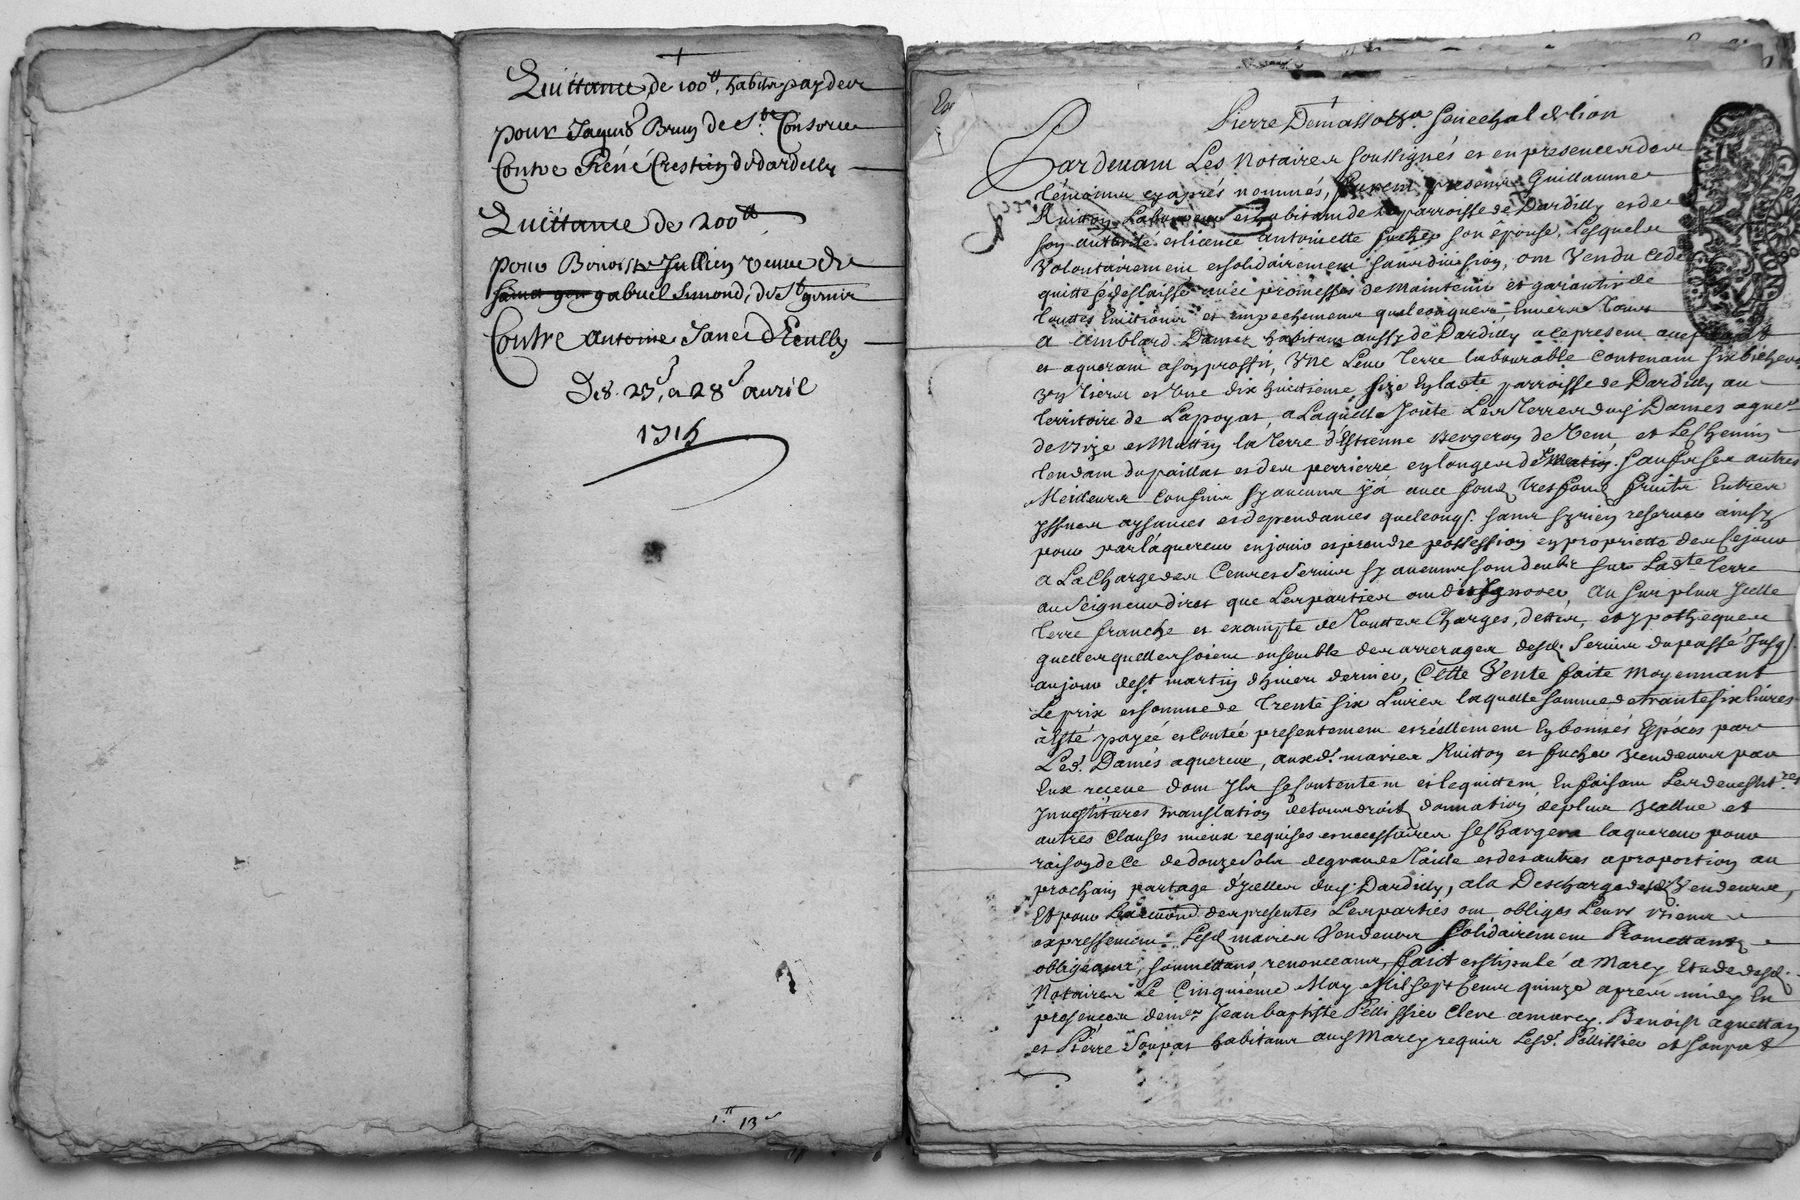 Quittance de 100tt, habits payder
pour Jaques Brun de Ste. Consorce
Contre Réné Crestien de dardilly
Quittance de 200tt
pour Benoiste Jullien veuve de
gabriel Simond, de St genis
Contre antoine Janet d'Ecully
Des 23, et 28e avril
1715
1tt 13s
Pierre Demasso Senechal de lion
Pardevant Les Notaires soussignés et en presence des
témoins cy aprés nommés, furent presents Guillaume
Ruitton Laboureur et habitant de la parroisse de Dardilly et de
son autorité et licence antoinette fucher son épouse, Lesquels
volontairement et solidairement sans division, ont vendu cedé
quitté & deslaissé avec promesses de maintenir et garantir de
touttes Evictions et empechements quelconques, Envers Tous
a amblard Dames habitant aussy de Dardilly a ce present
et aquerant a son proffit, une Leur Terre labourable contenant six bicherées
un tiers et une dix huictieme size en ladte parroisse de Dardilly au
territoire de Lapoyat, a Laquelle Joute Les terres dud Dames aquer
de vize et Mattin la terre d'Estienne Bergeron de vent, et Le chemin
tendant du paillat et des perrierre en longes de . sauf ses autres
Meilleurs confins sy aucuns y a avec fond tresfond fruits Entrées
Issues aysances et dependances quelconqs. sans sy rien reserver ainsy
pour par l'aquereur en jouir et prendre possession en proprietté des ce jour
a La charge des Cens et Servis sy aucuns sont deubs sur Ladte terre
au Seigneur direct que Les parties ont dit Ignorer, au surplus Icelle
terre franche et exampte de touttes Charges, dettes, et ypotheques
quelles quelles soient ensemble des arrerages desd. Servis du passé Jusq.
au jour de st martin d'hiver dernier, Cette Vente faite moyennant
Le prix et somme de trente six Livres laquelle somme de trante six livres
à Esté payée et contée presentement et réellement En bonnes Espéces par
Led. Dames aquereur, auxd. maries Ruitton et fucher vendeurs par
Eux receue dont Ils se contentent et le quittent En faisant Les devestitres
Investitures translation de tous droits donnation de plus vallue et
autres clauses mieux requises et necessaires se chargera laquereur pour
raison de ce de douze sols de grande Taille et des autres a proportion au
prochain partage d'Icelles dud. Dardilly, a la Descharge desd Vendeurs,
Et pour des presentes Les parties ont obligés Leurs biens
expressement Lesd maries Vendeurs Solidairement Promettants
obligeants, soumettans, renonceants, fait et stipulé a Marcy Etude desd.
Notaires Le Cinquieme May Mil sept Cents quinze aprés midy En
presence de me Jean baptiste Pelissier clerc a marcy. Benoist aguettan
et Pierre Soupat habitants aud Marcy requis Lesd. Pelissier et soupat